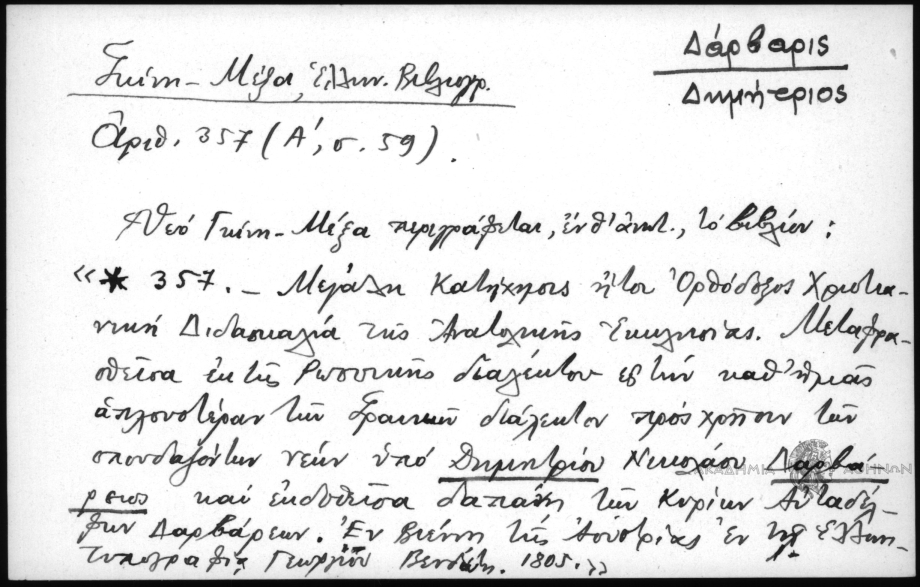 Δάρβαρις
Δημήτριος
Γκίνη - Μέξα, Ἑλλην. Βιβλιογρ.
Ἀριθ. 357 (Α΄, σ. 59).
Ὑπό Γκίνη - Μέξα περιγράφεται, ἐνθ' ἀνωτ., τό βιβλίον:
«* 357. – Μεγάλη Κατήχησις ἤτοι Ὀρθόδοξος Χριστια-
νική Διδασκαλία τῆς Ἀνατολικῆς Ἐκκλησίας. Μεταφρα-
σθεῖσα ἐκ τῆς Ρωσσικῆς διαλέκτου εἰς τήν καθ' ἡμᾶς
ἁπλουστέραν τῶν Γραικῶν διάλεκτον πρός χρῆσιν τῶν
σπουδαζόντων νέων ὑπό Δημητρίου Νικολάου Δαρβά-
ρεως καί ἐκδοθεῖσα δαπάνῃ τῶν Κυρίων Αὐταδέλ-
φων Δαρβάρεων. Ἐν Βιέννῃ τῆς Ἀουστρίας Ἐν τῇ Ἑλλην.
τυπογραφίᾳ Γεωργίου Βενδώτη. 1805.»
ΑΚΑΔΗΜΙΑ ΑΘΗΝΩΝ